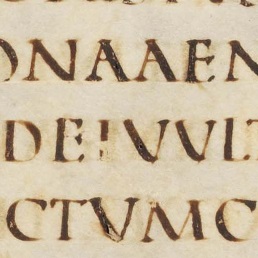 ONAAEN
DEIVVLT
CTVMC